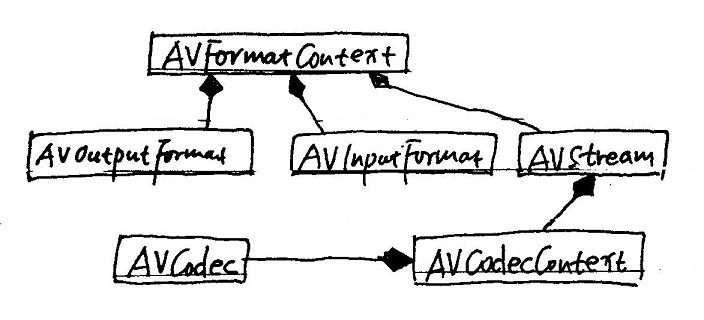 AVFormatContext
AVOutputFormat
AVInputFormat
AVStream
AVCodec
AVCodecContext